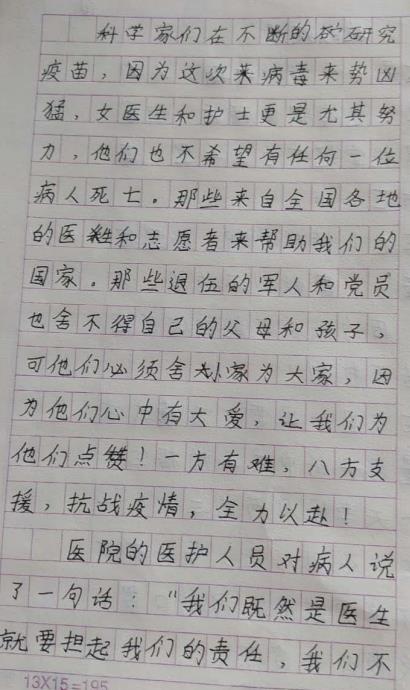 科学家们在不断的研究
疫苗，因为这次来病毒来势凶
猛，女医生和护士更是尤其努
力，他们也不希望有任何一位
病人死亡。那些来自全国各地
的医生和志愿者来帮助我们的
国家。那些退伍的军人和党员
也舍不得自己的父母和孩子，
可他们必须舍小家为大家，因
为他们心中有大爱，让我们为
他们点赞！一方有难，八方支
援，抗战疫情，全力以赴！
医院的医护人员对病人说
了一句话：“我们既然是医生
就要担起我们的责任，我们不
13X15=195